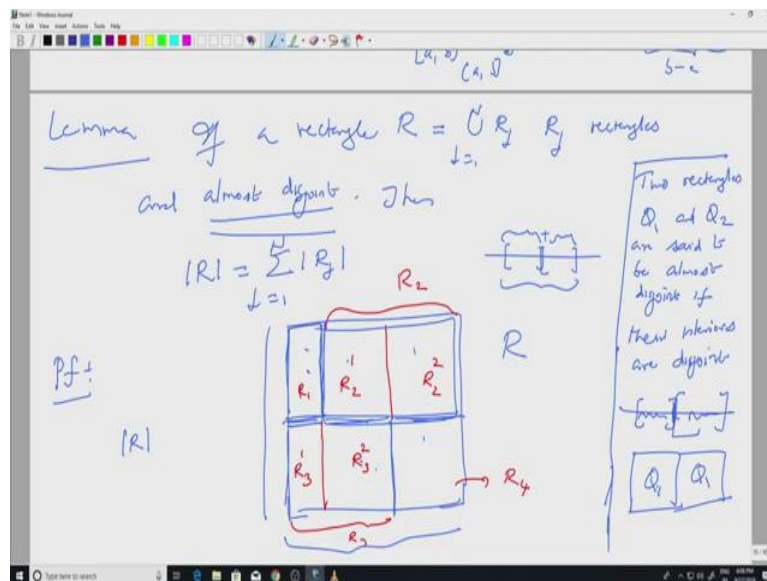 Note1 - Windows Journal
File Edit View Insert Actions Tools Help
[a, b]
(a, b)
b-a
Lemma If a rectangle R = ∪_{j=1}^{N} R_j R_j rectangles
and almost disjoint. Then
|R| = Σ_{j=1}^{N} |R_j|
R_2
R
Pf:
|R|
R_1
R_2^1
R_2^2
R_3^1
R_3^2
R_4
R_3
Two rectangles
Q_1 and Q_2
are said to
be almost
disjoint if
their interiors
are disjoint
Q_1 Q_1
Type here to search